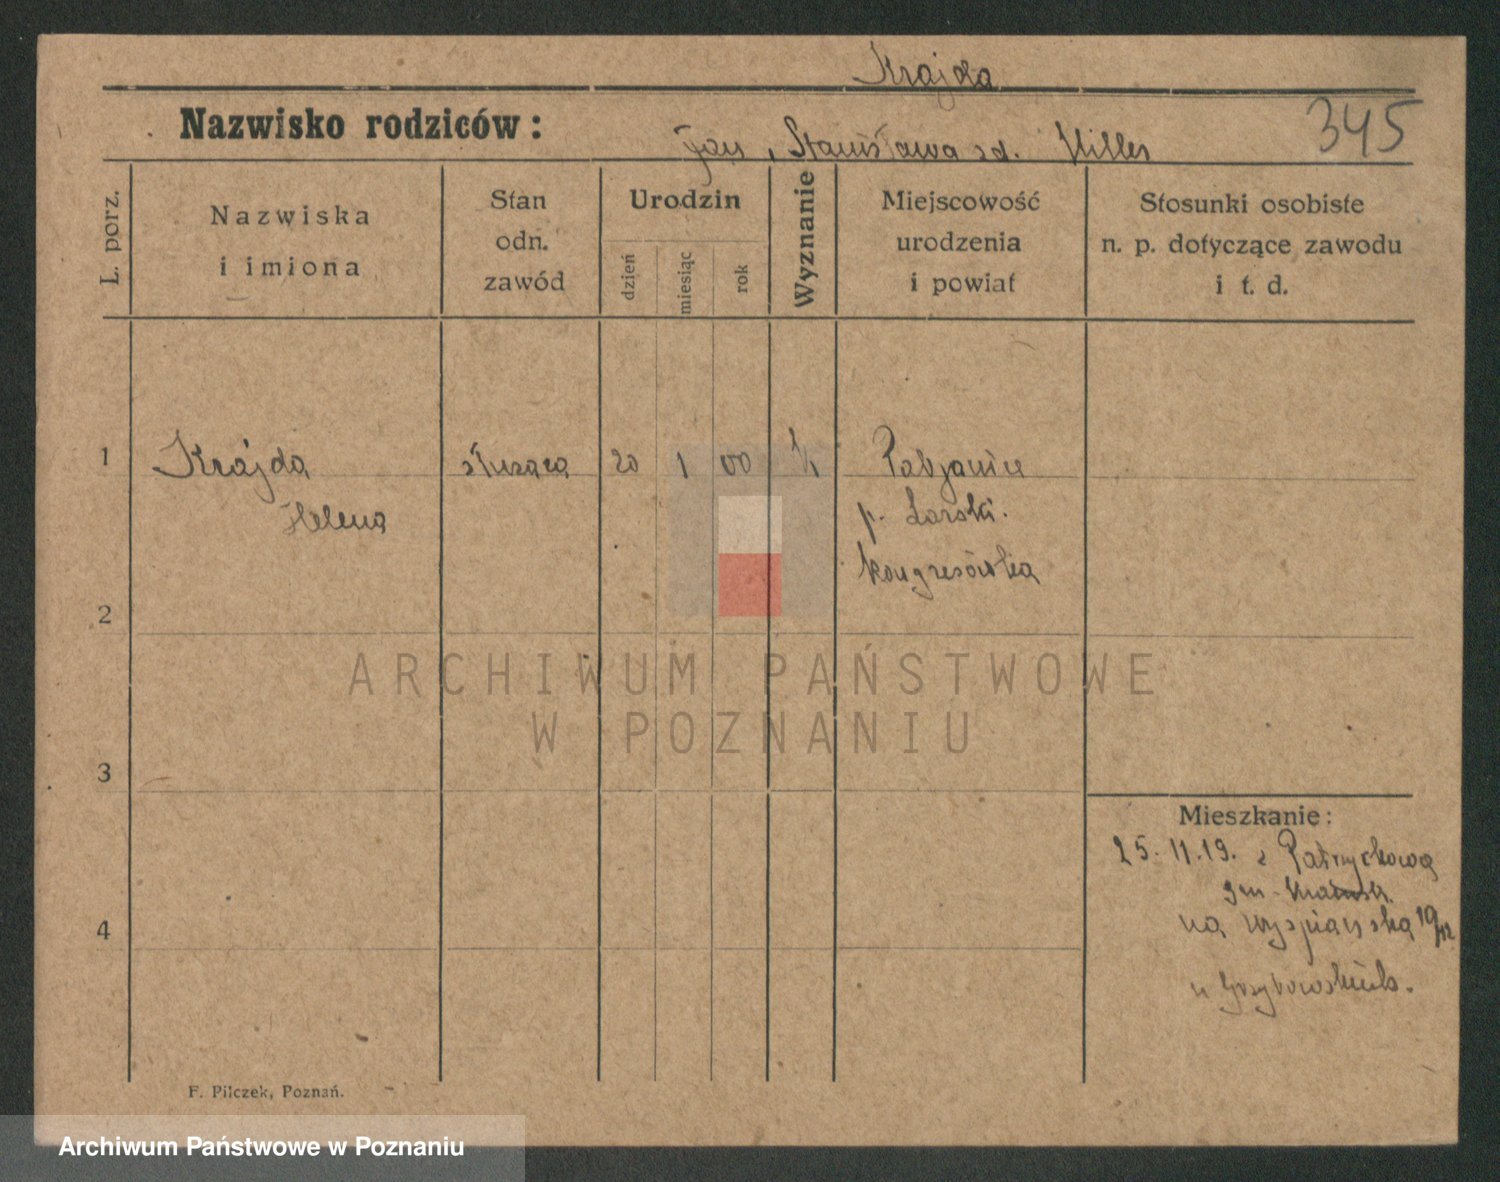 Krajda
345
Nazwisko rodziców:
Jan, Stanisława zd. Miller
L. porz.
Nazwiska
i imiona
Stan
odn.
zawód
Urodzin
dzień
miesiąc
rok
Wyznanie
Miejscowość
urodzenia
i powiat
Stosunki osobiste
n. p. dotyczące zawodu
i t. d.
1 Krajda służąca 20 1 00 Pabjanice
Helena
p. Łaski.
kongresówka
2
ARCHIWUM PAŃSTWOWE
W POZNANIU
3
Mieszkanie:
25.11.19. z
4
na Wyspiańską 10/12
u
F. Pilczek, Poznań.
Archiwum Państwowe w Poznaniu